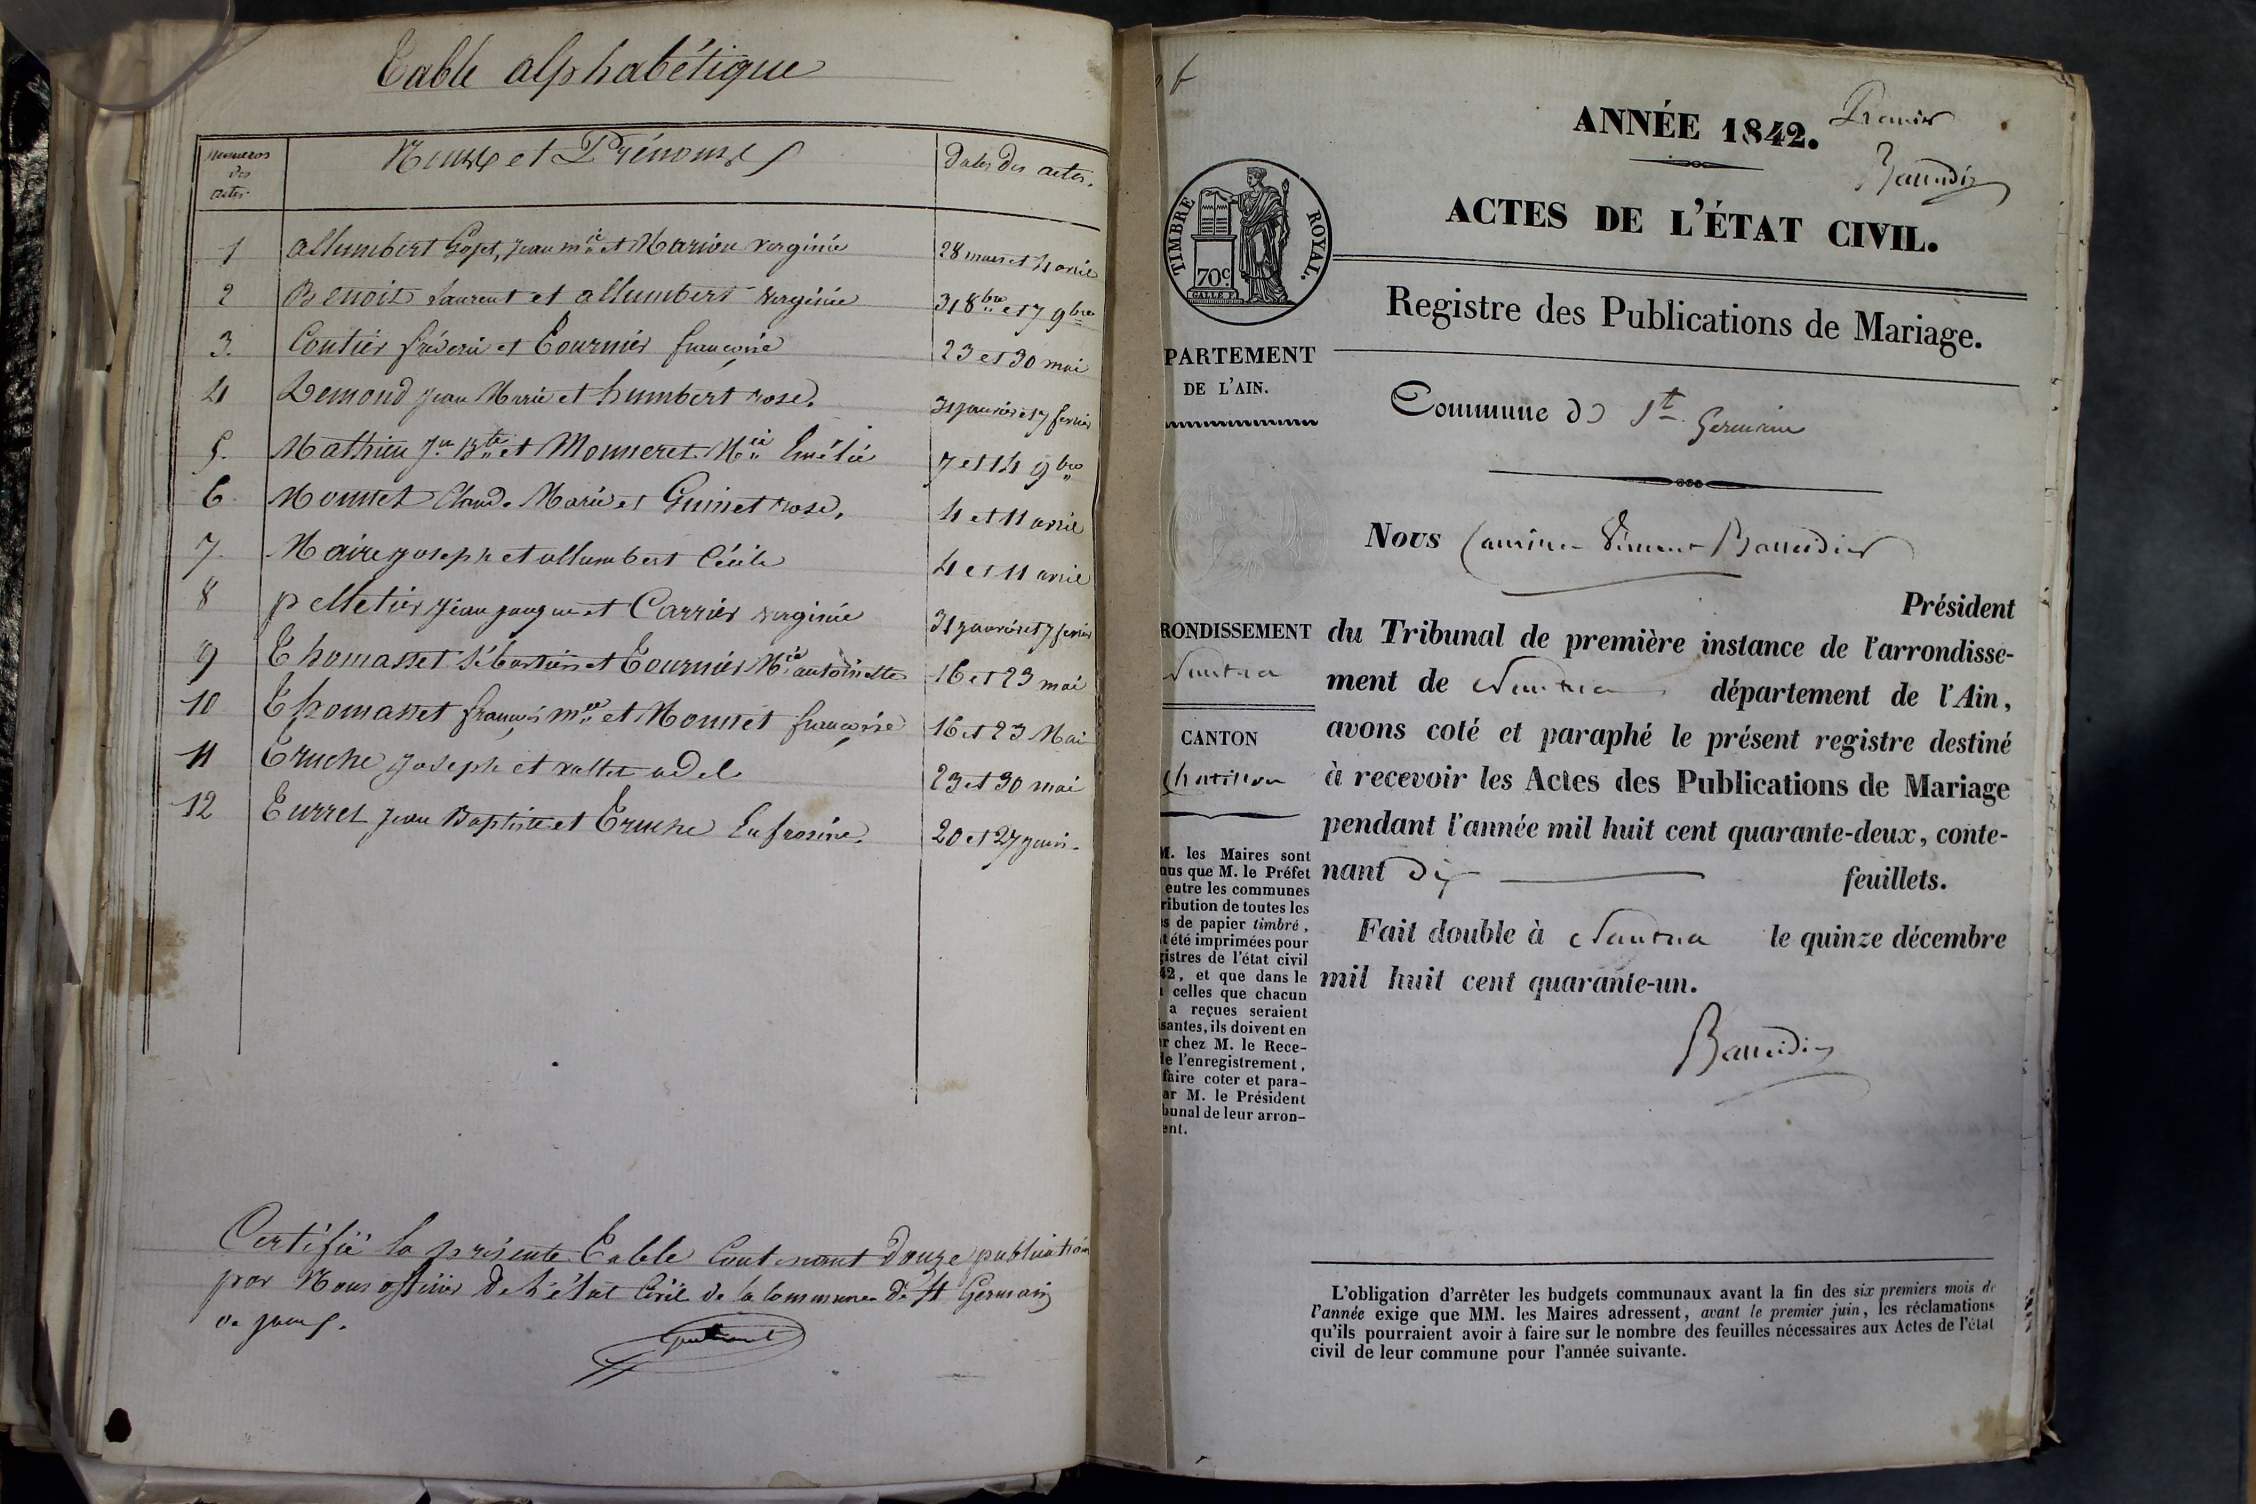 Table alphabétique
Numeros des actes
Noms et Prénoms
Dates des actes.
1 allumbert Goyet, Jean mie et Marion verginie 28 mars et 4 avril
2 Benoit Laurent et allumbert verginie 31 8bre et 7 9bre
3. Coutier fréderic et Tournier françoise 23 et 30 mai
4 Demond Jean Marie et humbert rose. 31 janvier et 7 fevrier
5. Mathieu Jn Bte et Monneret Mie Emélie 7 et 14 9bre
6. Monnet Claude Marie et Guinet rose, 4 et 11 avril
7. Maire joseph et allumbert Cécile 4 et 11 avril
8 pelletier Jean jacque et Carrier verginie 31 janvier et 7 fevrier
9 Thomasset Sébastien et Tournier Mie antoinette 16 et 23 mai
10 Thomasset françois mie et Monnet françoise 16 et 23 Mai
11 Truche Joseph et vallet adel 23 et 30 mai
12 Turrel Jean Baptiste et Truche Eufrosine. 20 et 27 juin.
Certifié la présente Table Contenant Douze publication
par Nous officier de l'état Civil de la commune de St Germain
de joux.
6
ANNÉE 1842.
Premier
Baudin
ACTES DE L'ÉTAT CIVIL.
TIMBRE ROYAL.
70c.
Registre des Publications de Mariage.
PARTEMENT
DE L'AIN.
Commune de St Germain
Nous
Président
RONDISSEMENT
Nantua
du Tribunal de première instance de l'arrondisse-
ment de Nantua département de l'Ain,
CANTON
Chatillon
avons coté et paraphé le présent registre destiné
à recevoir les Actes des Publications de Mariage
pendant l'année mil huit cent quarante-deux, conte-
nant dix feuillets.
Fait double à Nantua le quinze décembre
mil huit cent quarante-un.
M. les Maires sont
nus que M. le Préfet
entre les communes
ribution de toutes les
s de papier timbré,
t été imprimées pour
gistres de l'état civil
42, et que dans le
celles que chacun
a reçues seraient
santes, ils doivent en
r chez M. le Rece-
de l'enregistrement,
faire coter et para-
ar M. le Président
bunal de leur arron-
ent.
L'obligation d'arrêter les budgets communaux avant la fin des six premiers mois de
l'année exige que MM. les Maires adressent, avant le premier juin, les réclamations
qu'ils pourraient avoir à faire sur le nombre des feuilles nécessaires aux Actes de l'état
civil de leur commune pour l'année suivante.